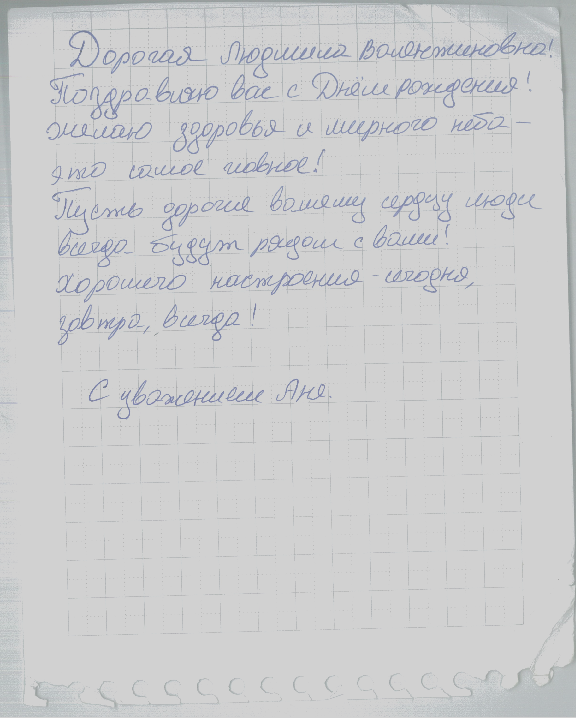 Дорогая Людмила Валентиновна!
Поздравляю вас с Днём рождения!
желаю здоровья и мирного неба -
это самое главное!
Пусть дорогие вашему сердцу люди
всегда будут рядом с вами!
Хорошего настроения - сегодня,
завтра, всегда!
С уважением Аня.